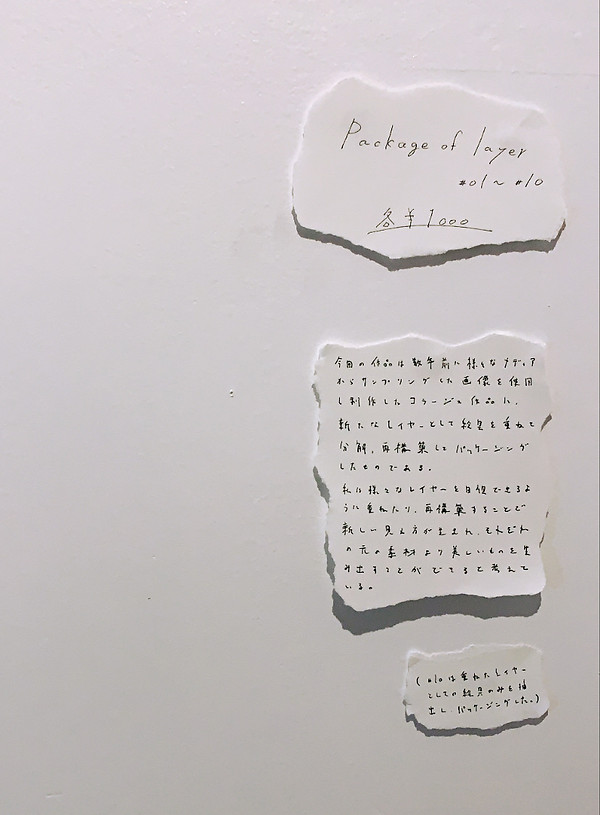 Package of layer
#01〜#10
各¥1000
今回の作品は数年前に様々なメディア
からサンプリングした画像を使用
し制作したコラージュ作品に、
新たなレイヤーとして絵具を重ねて
分解、再構築してパッケージング
したものである。
私は様々なレイヤーを目視できるよ
うに重ねたり、再構築することで
新しい見え方が生まれ、それぞれ
の元の素材より美しいものを生
み出すことができると考えて
いる。
(#10は重ねたレイヤー
としての絵具のみを抽
出し、パッケージングした。)